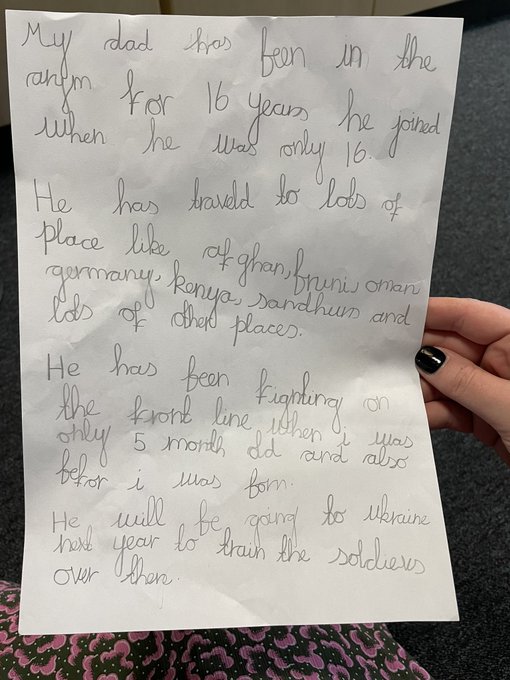 My dad has been in the
arym for 16 years he joined
when he was only 16.
He has traveld to lots of
place like afghan, bruni, oman
germany, kenya, sandhurs and
lots of other places.
He has been fighting on
the front line when i was
only 5 month old and also
befor i was born.
He will be going to ukraine
next year to train the soldiers
over there.